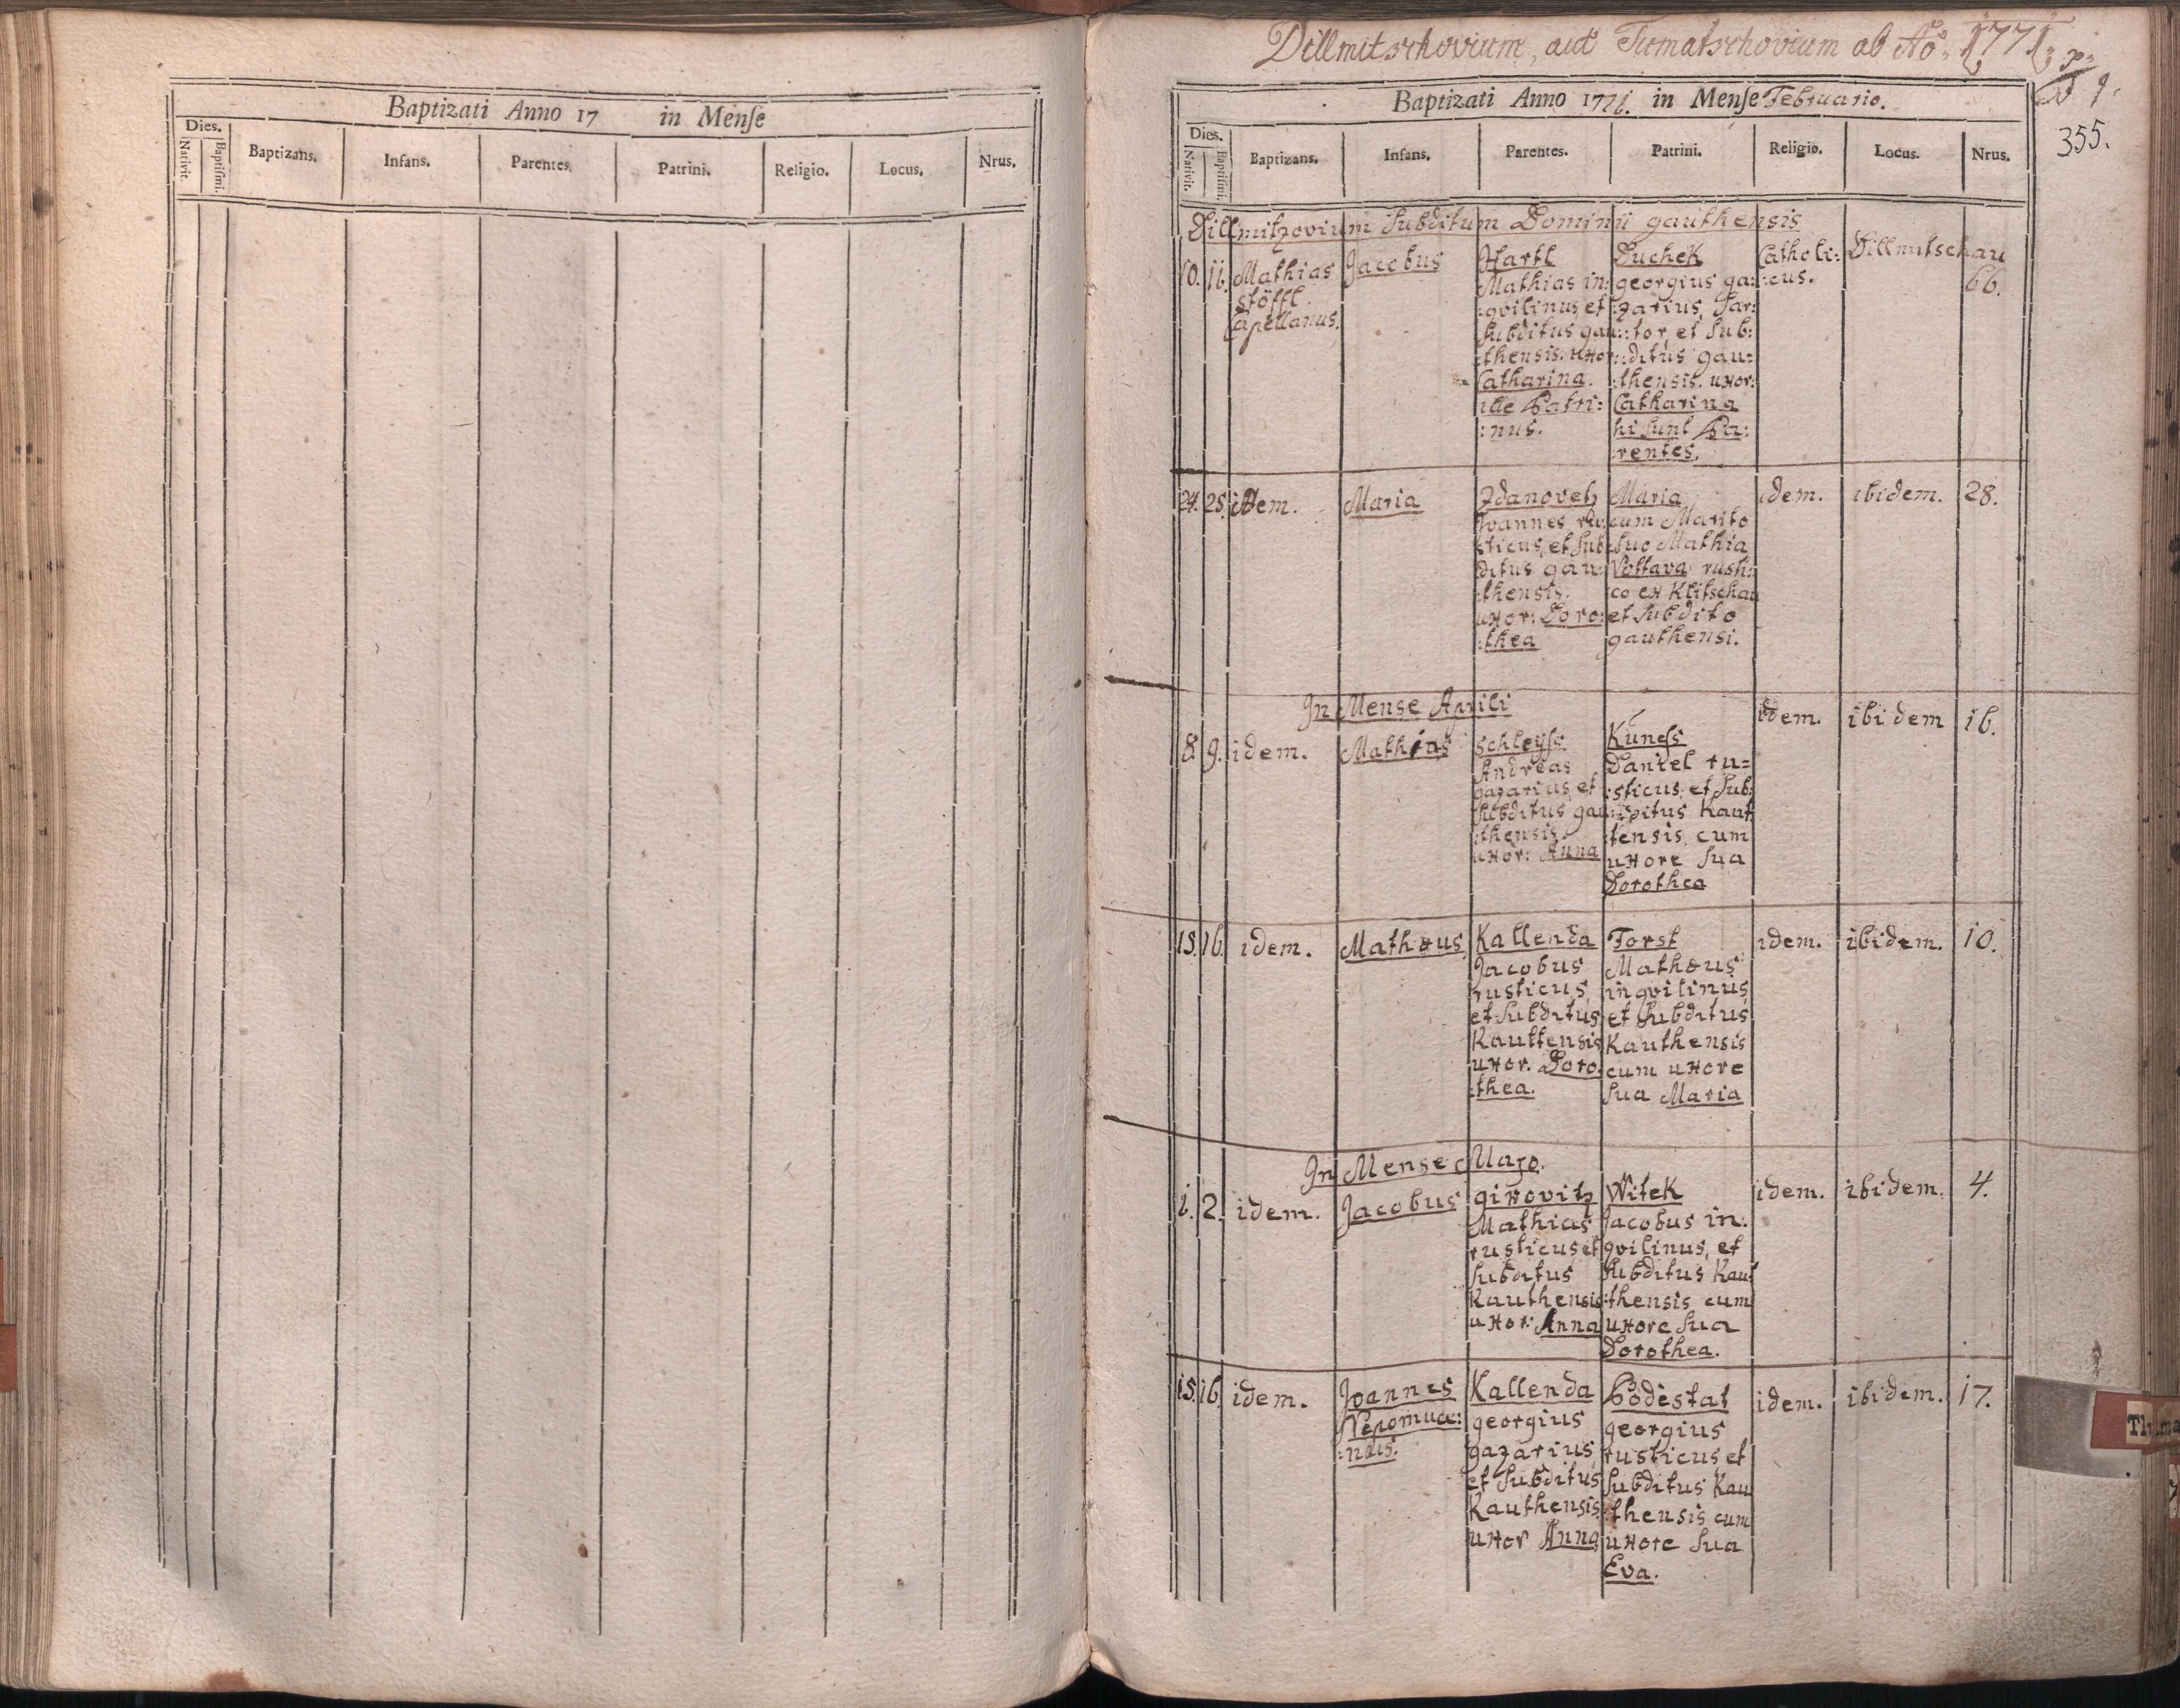 Baptizati Anno 17 in Menſe
Dies.
Nativit.
Baptiſmi.
Baptizans.
Infans.
Parentes.
Patrini.
Religio.
Locus.
Nrus.
Dillmitschovium, aut Tumatschovium ab Ao. 1771.
355.
Baptizati Anno 1771. in Menſe Februario.
Dies.
Nativit.
Baptiſmi.
Baptizans.
Infans.
Parentes.
Patrini.
Religio.
Locus.
Nrus.
Dillmitzovium Subditum Dominii gauthensis
10.
11.
Mathias
Stöffl
Capellanus.
Jacobus
Hartl
Mathias in:
:qvilinus, et
Subditus gau:
:thensis. uxor
Catharina.
ille Patri:
:nus.
Duchek
georgius ga:
:zarius, Sar:
:tor, et Sub:
:ditus gau:
:thensis. uxor:
Catharina
hi sunt Pa:
:rentes.
Catholi:
:cus.
Dillmitschau
66.
24.
25.
idem.
Maria
Zdanovetz
Joannes ru:
sticus, et Sub:
ditus gau:
:thensis.
uxor: Doro:
:thea
Maria
cum Marito
Suo Mathia
Vottava rusti:
:co ex Klitschau
et Subdito
gauthensi.
idem.
ibidem.
28.
In Mense Aprili
8.
9.
idem.
Mathias
Schleyſs
Andreas
gazarius, et
Subditus gau:
:thensis.
uxor: Anna
Kuneſs
Daniel ru=
:sticus, et Sub:
:ditus Kaut
:tensis, cum
uxore Sua
Dorothea
idem.
ibidem
16.
15.
16.
idem.
Matheus
Kallenda
Jacobus
rusticus,
et Subditus
Kauttensis
uxor. Doro:
:thea.
Forst
Matheus
inqvilinus,
et Subditus
Kauthensis
cum uxore
Sua Maria
idem.
ibidem.
10.
In Mense Majo.
1.
2.
idem.
Jacobus
gixovitz
Mathias
rusticus, et
Subditus
Kauthensis
uxor: Anna
Witek
Jacobus in:
qvilinus, et
Subditus Kau:
:thensis cum
uxore Sua
Dorothea.
idem.
ibidem.
4.
15.
16.
idem.
Joannes
Nepomuce:
:nus.
Kallenda
georgius
gazarius,
et Subditus
Kauthensis.
uxor Anna
Podestat
georgius
rusticus et
Subditus Kau
:thensis cum
uxore Sua
Eva.
idem.
ibidem.
17.